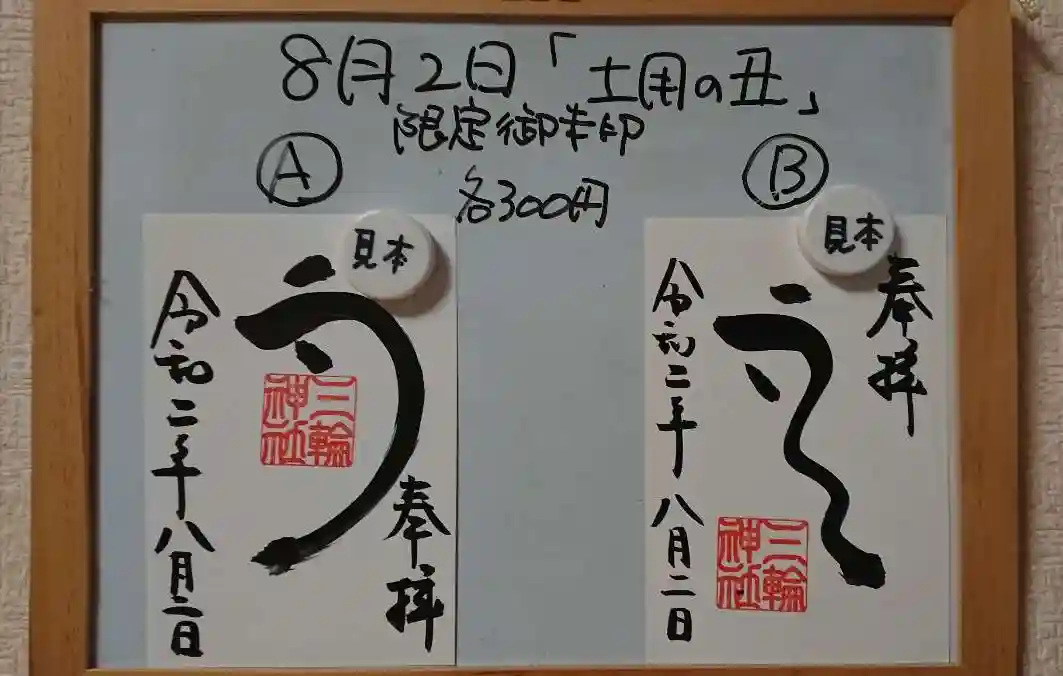 8月2日「土用の丑」
限定御朱印
各300円
Ⓐ
見本
う
奉拝
令和二年八月二日
三輪神社
Ⓑ
見本
奉拝
う
令和二年八月二日
三輪神社